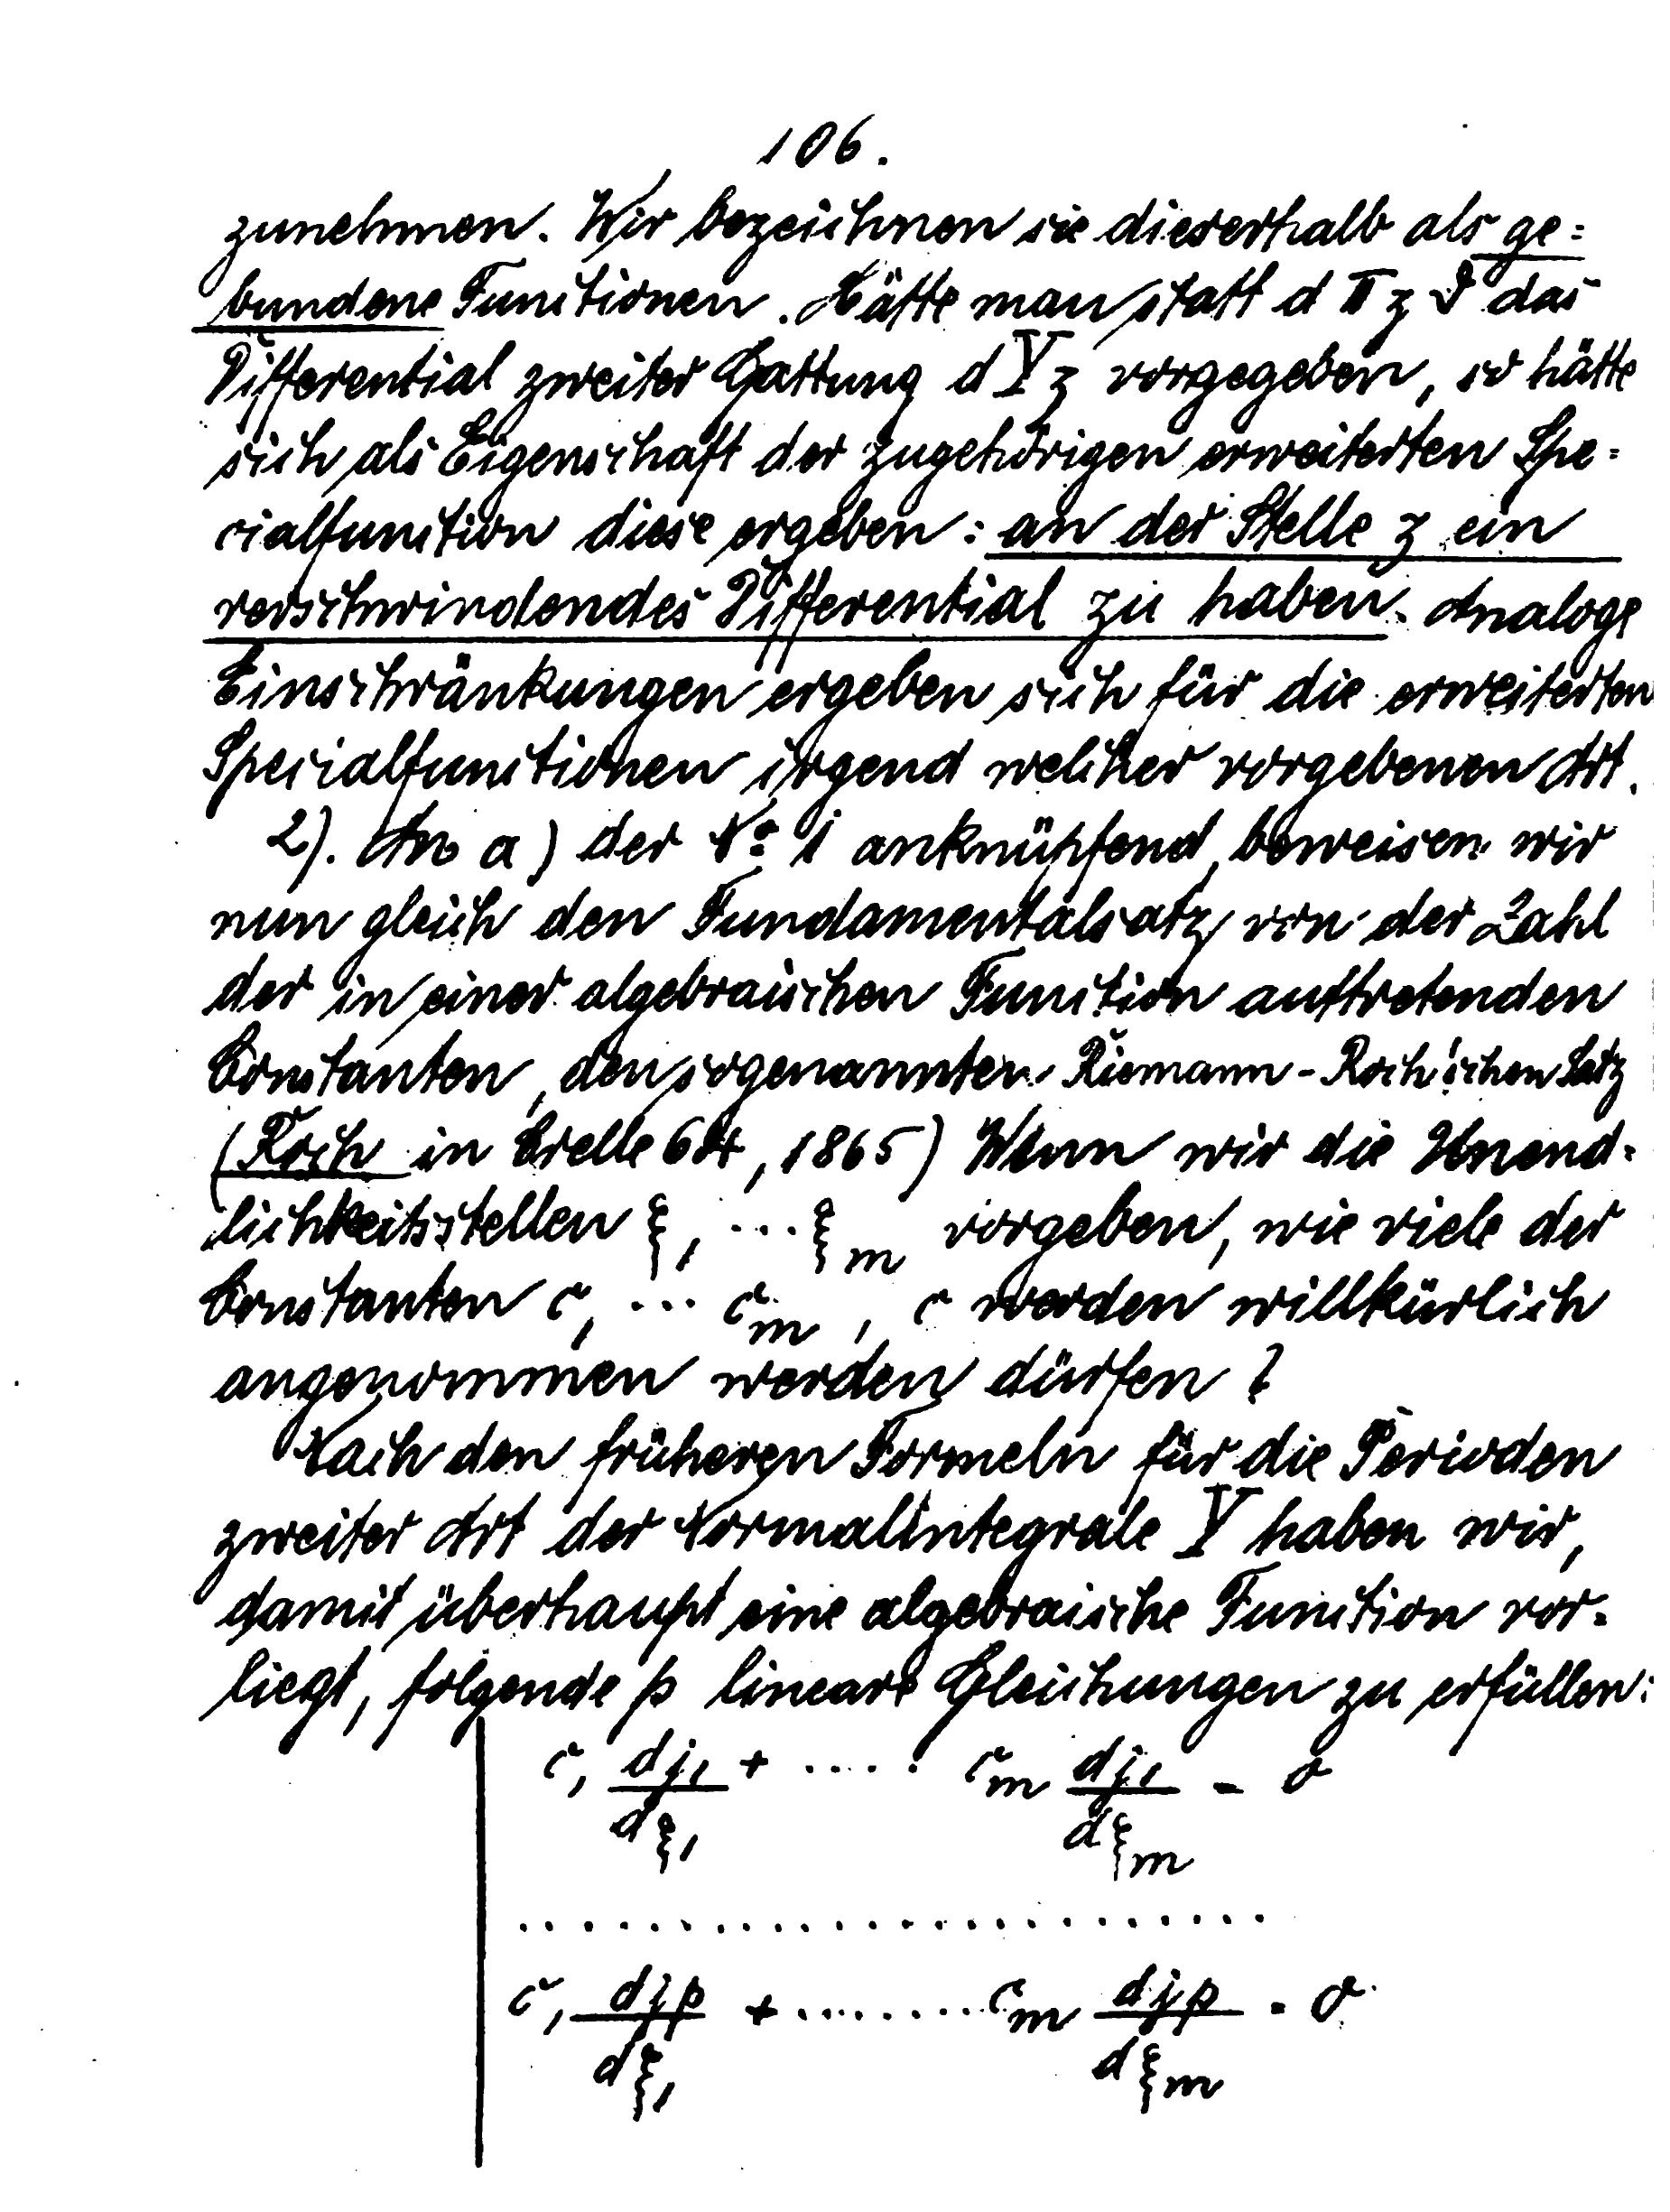 106.
zunehmen. Wir bezeichnen sie dieserhalb als ge=
bundene Functionen. Hätte man statt d Π z ϑ das
Differential zweiter Gattung d Y z vorgegeben, so hätte
sich als Eigenschaft der zugehörigen erweiterten Spe=
cialfunction diese ergeben: an der Stelle z ein
verschwindendes Differential zu haben. Analoge
Einschränkungen ergeben sich für die erweiterten
Specialfunctionen irgend welcher vorgebenen Art.
2). An a) der № 1 anknüpfend, beweisen wir
nun gleich den Fundamentalsatz von der Zahl
der in einer algebraischen Function auftretenden
Constanten, den sogenannten Riemann-Roch'schen Satz
(Roch in Crelle 64, 1865) Wenn wir die Unend=
lichkeitsstellen ξ₁ ... ξₘ vorgeben, wie viele der
Constanten c₁ ... cₘ, c werden willkürlich
angenommen werden dürfen?
Nach den früheren Formeln für die Perioden
zweiter Art der Normalintegrale Y haben wir,
damit überhaupt eine algebraische Function vor=
liegt, folgende p lineare Gleichungen zu erfüllen:
c₁ dj₁/dξ₁ + ..... cₘ dj₁/dξₘ = 0
........................
c₁ djₚ/dξ₁ + ........ cₘ djₚ/dξₘ = 0